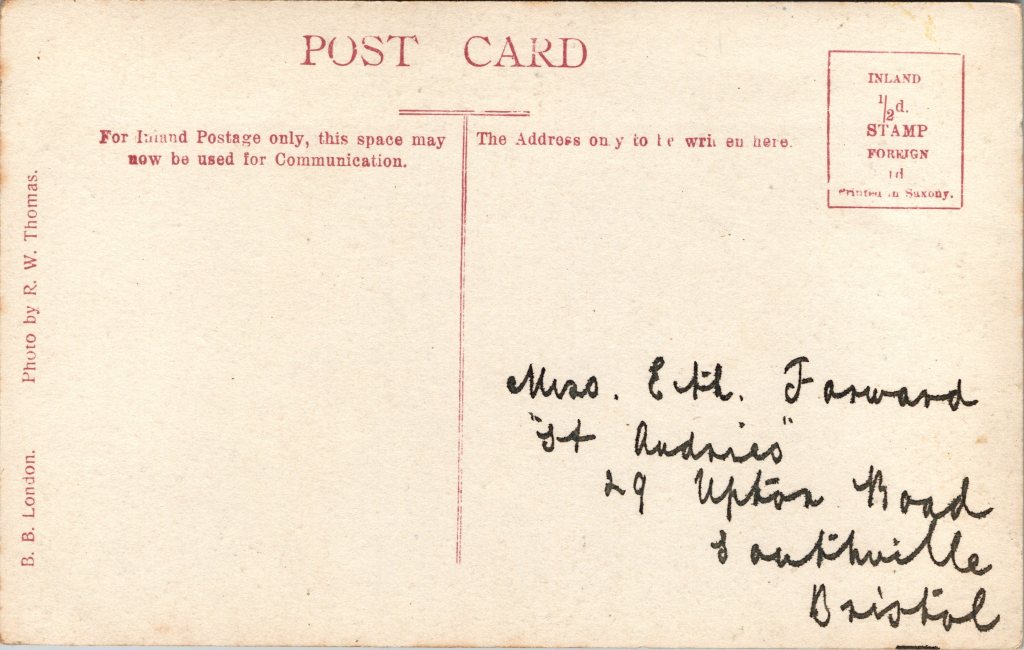 POST CARD
For Inland Postage only, this space may
now be used for Communication.
The Address only to be written here.
INLAND
½d.
STAMP
FOREIGN
1d
Printed in Saxony.
Photo by R. W. Thomas.
B. B. London.
Miss. Eth. Forward
"St Audries"
29 Upton Road
Southville
Bristol